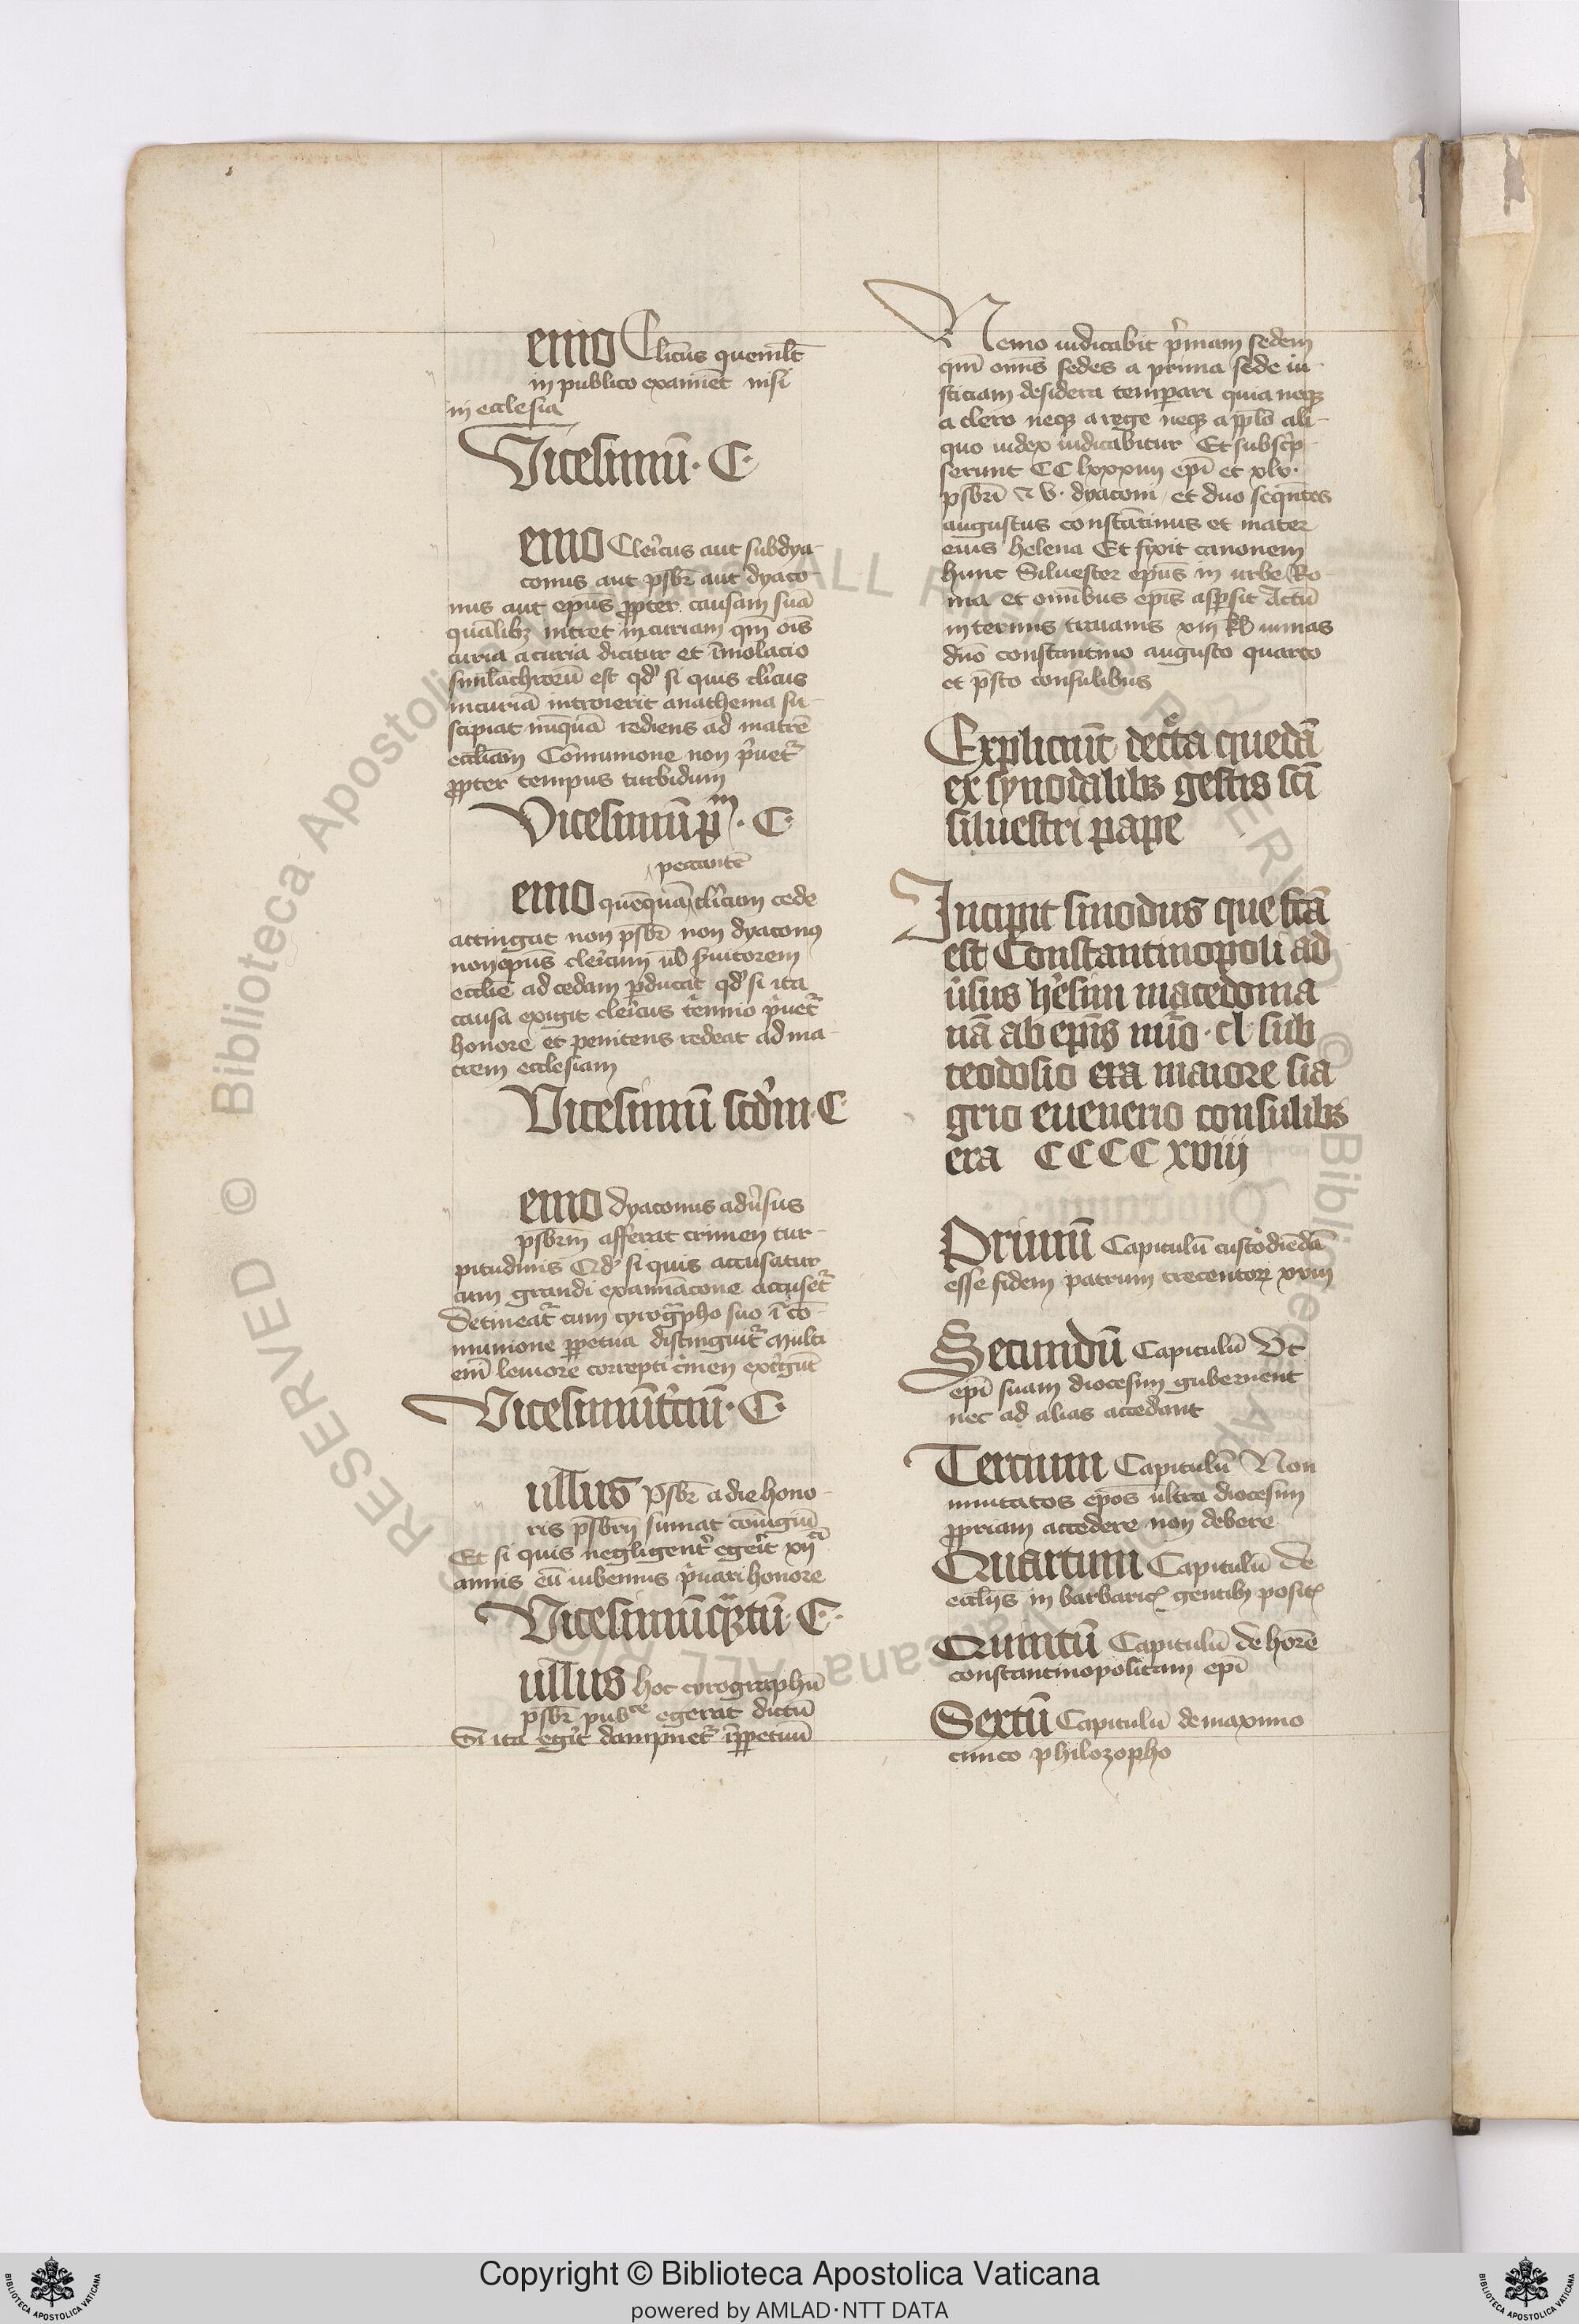 emo Clicus quemlt
in publico examiet nisi
in ecclesia
Vicesimū · C ·
emo Clericus aut subdya-
conus aut psbr̄ aut dyaco-
nus aut epūs ꝓpter causam suā
quālibꝫ intret in curiam qm̄ oīs
curia a curia dicitur et īmolacio
simlachrorū est qd̓ si quis clicus
in curiā introierit anathema su-
scipiat nūquā rediens ad matrē
eccliam Cōmunione non p̓uetr̄
ꝓpter tempus turbidum
Vicesimū pm̄ · C ·
peccantē
emo quēquā clicum cede
attingat non psbr̄ non dyaconꝰ
non epūs clericum ūl s̓uitorem
ecclie ad cedam ꝑducat qd̓ si ita
causa exigit clericus t̓ennio p̓uetr̄
honore et penitens redeat ad ma-
trem ecclesiam
Vicesimū scd̓m · C ·
emo dyaconus adu̓sus
psbrm̄ afferat crimen tur-
pitudinis Qd̓ si quis accusatur
cum grandi examīacōne accusetr̄
Detineatr̄ cum cyrogrꝑho suo ī cō-
munione ꝑpetua distinguitr̄ Multi
em̄ leuiore correpti c̓men ext̓gūt
Vicesimūt̓ciū · C ·
ullus psbr̄ a die hono-
ris psbrij sumat cōiugiū
Et si quis negligent̓ egerit xij
annis eū iubemus p̓uari honore
Vicesimūqr̄tū · C ·
ullus hoc cyrographū
psbr̄ pub egerat dictū
Si ita egit dampnetr̄ īꝑpetuū
Nemo iudicabit p̓mam sedem
qm̄ om̄s sedes a prima sede iu-
sticiam desidera temꝑari quia neqꝫ
a clero neqꝫ a rege neqꝫ a pplō ali-
quo iudex iudicabitur Et subscp̓-
serunt CC lxxxiiij epī et xlv ·
psbrī & v · dyaconi et duo seqūtes
augustus constātinus et mater
eius helena Et fyxit canonem
hunc Siluester epūs in urbe Ro-
ma et om̄ibus epīs aspersit Actū
in termis traianis xiij kl̄ iunias
dn̄o constantino augusto quarto
et p̄sto consulibus
Expliciūt decr̄ta quedā
ex synodalibꝫ gestis sc̄i
siluestri pape
Incipit sinodus que fc̄ā
est Constantinopoli ad
u̓sus he̓sim macedonia
nā ab epīs nūo · cl · sub
teodosio era maiore sia
grio euenerio consulibꝫ
era CCCC xviij
Primū Capitulū custodiēdā
esse fidem patrum trecentoꝝ xviij
Secundū Capitulū Vt
epī suam diocesim gubernent
nec ad alias accedant
Tercium Capitulū Non
inuitatos epōs ultra diocesim
ꝓpriam accedere non debere
Quartum Capitulū de
eccliis in barbaric gentibꝫ posit
Quintū Capitulū de honorē
constantinopolitani epī
Sextū Capitulū de maximo
cinico philozopho
© Biblioteca Apostolica Vaticana ALL RIGHTS RESERVED
Copyright © Biblioteca Apostolica Vaticana
powered by AMLAD·NTT DATA
BIBLIOTECA APOSTOLICA VATICANA
BIBLIOTECA APOSTOLICA VATICANA